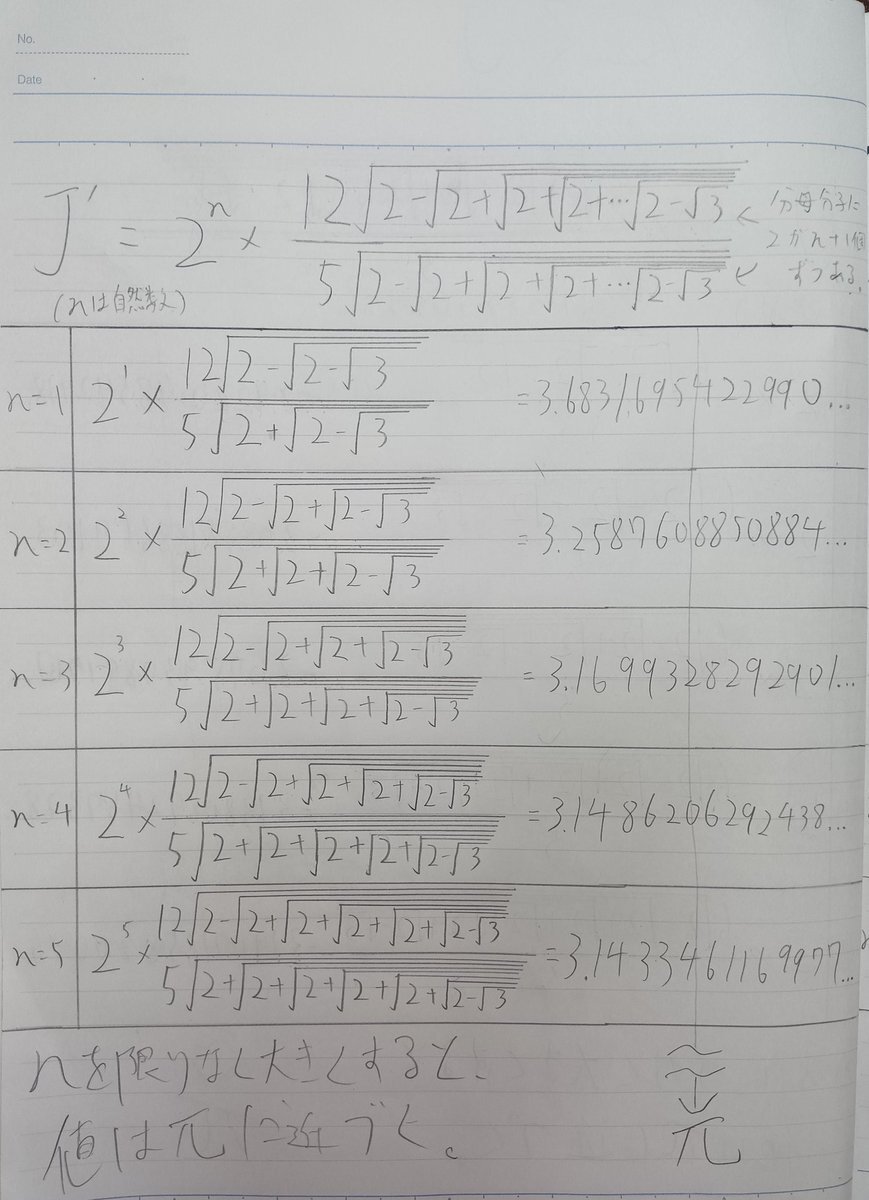 No.
Date
J' = 2^n × 12√(2-√(2+√(2+√(2+…√(2-√3))))) / 5√(2-√(2+√(2+√(2+…√(2-√3)))))
←分母分子に
2がn+1個
ずつある。
(nは自然数)
n=1 2^1 × 12√(2-√(2-√3)) / 5√(2+√(2-√3)) =3.6831695422990...
n=2 2^2 × 12√(2-√(2+√(2-√3))) / 5√(2+√(2+√(2-√3))) =3.2587608850884...
n=3 2^3 × 12√(2-√(2+√(2+√(2-√3)))) / 5√(2+√(2+√(2+√(2-√3)))) =3.1699328292901...
n=4 2^4 × 12√(2-√(2+√(2+√(2+√(2-√3))))) / 5√(2+√(2+√(2+√(2+√(2-√3))))) =3.1486206292438...
n=5 2^5 × 12√(2-√(2+√(2+√(2+√(2+√(2-√3)))))) / 5√(2+√(2+√(2+√(2+√(2+√(2-√3)))))) =3.1433461169977...
nを限りなく大きくすると、
値はπに近づく。
↓
π